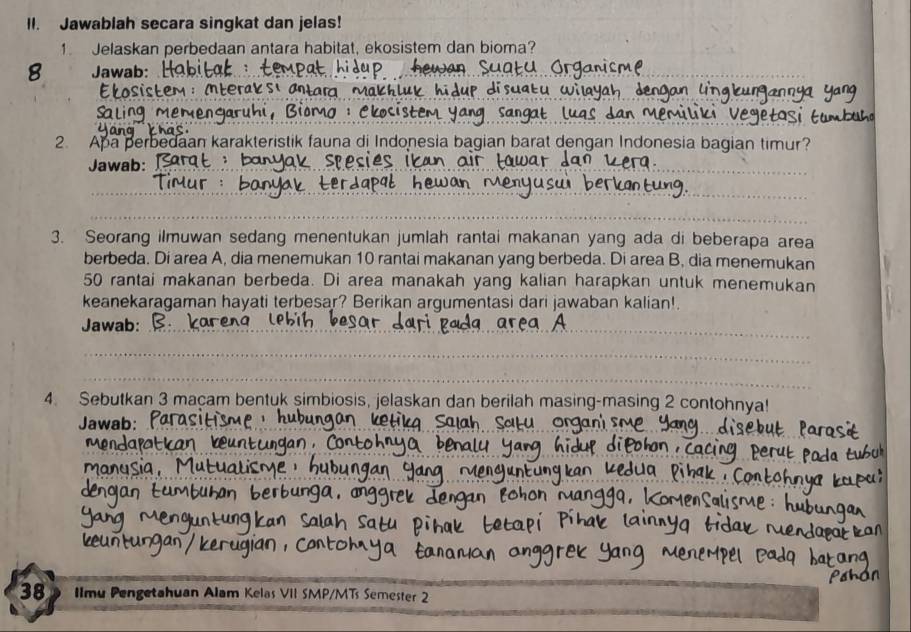 II. Jawablah secara singkat dan jelas!
1. Jelaskan perbedaan antara habitat, ekosistem dan bioma?
8 Jawab: Habitat : tempat hidup, hewan suatu organisme
Ekosistem : interaksi antara makhluk hidup disuatu wilayah dengan lingkungannya yang
saling memengaruhi, Bioma : ekosistem yang sangat luas dan memiliki vegetasi tumbuhan
yang khas.
2. Apa perbedaan karakteristik fauna di Indonesia bagian barat dengan Indonesia bagian timur?
Jawab: Barat : banyak spesies ikan air tawar dan kera.
Timur : banyak terdapat hewan menyusui berkantung.
3. Seorang ilmuwan sedang menentukan jumlah rantai makanan yang ada di beberapa area
berbeda. Di area A, dia menemukan 10 rantai makanan yang berbeda. Di area B, dia menemukan
50 rantai makanan berbeda. Di area manakah yang kalian harapkan untuk menemukan
keanekaragaman hayati terbesar? Berikan argumentasi dari jawaban kalian!.
Jawab: B. karena lebih besar dari pada area A
4. Sebutkan 3 macam bentuk simbiosis, jelaskan dan berilah masing-masing 2 contohnya!
Jawab: Parasitisme : hubungan ketika salah satu organisme yang disebut parasit
mendapatkan keuntungan. Contohnya benalu yang hidup dipohon, cacing perut pada tubuh
manusia, Mutualisme : hubungan yang menguntungkan kedua pihak, Contohnya kupu2
dengan tumbuhan berbunga, anggrek dengan pohon mangga, Komensalisme : hubungan
yang menguntungkan salah satu pihak tetapi pihak lainnya tidak mendapatkan
keuntungan/kerugian, contohnya tanaman anggrek yang menempel pada batang
pohon
38 Ilmu Pengetahuan Alam Kelas VII SMP/MTs Semester 2